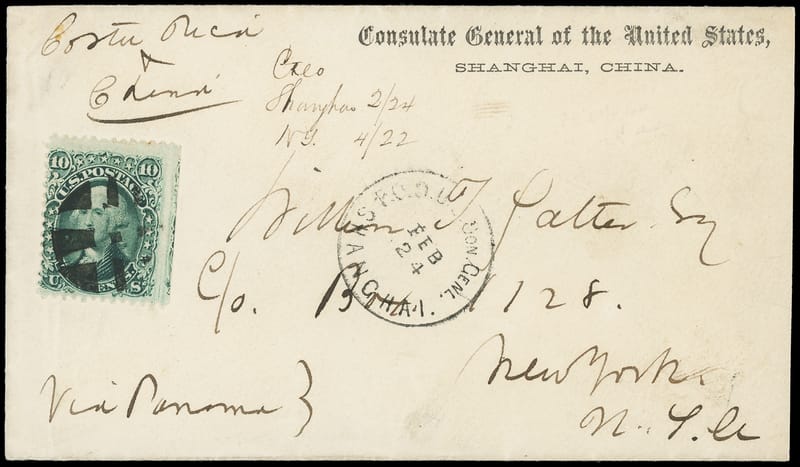 Costa Rica
&
China
Consulate General of the United States,
SHANGHAI, CHINA.
Shanghai 2/24
N.Y. 4/22
10 10
U.S. POSTAGE
U. CENTS. S.
U.S. P.O. CON. GENL.
FEB
24
SHANGHAI.
William T. Salter Esq
C/o. Box 128.
New York
N. Y.
Via Panama }